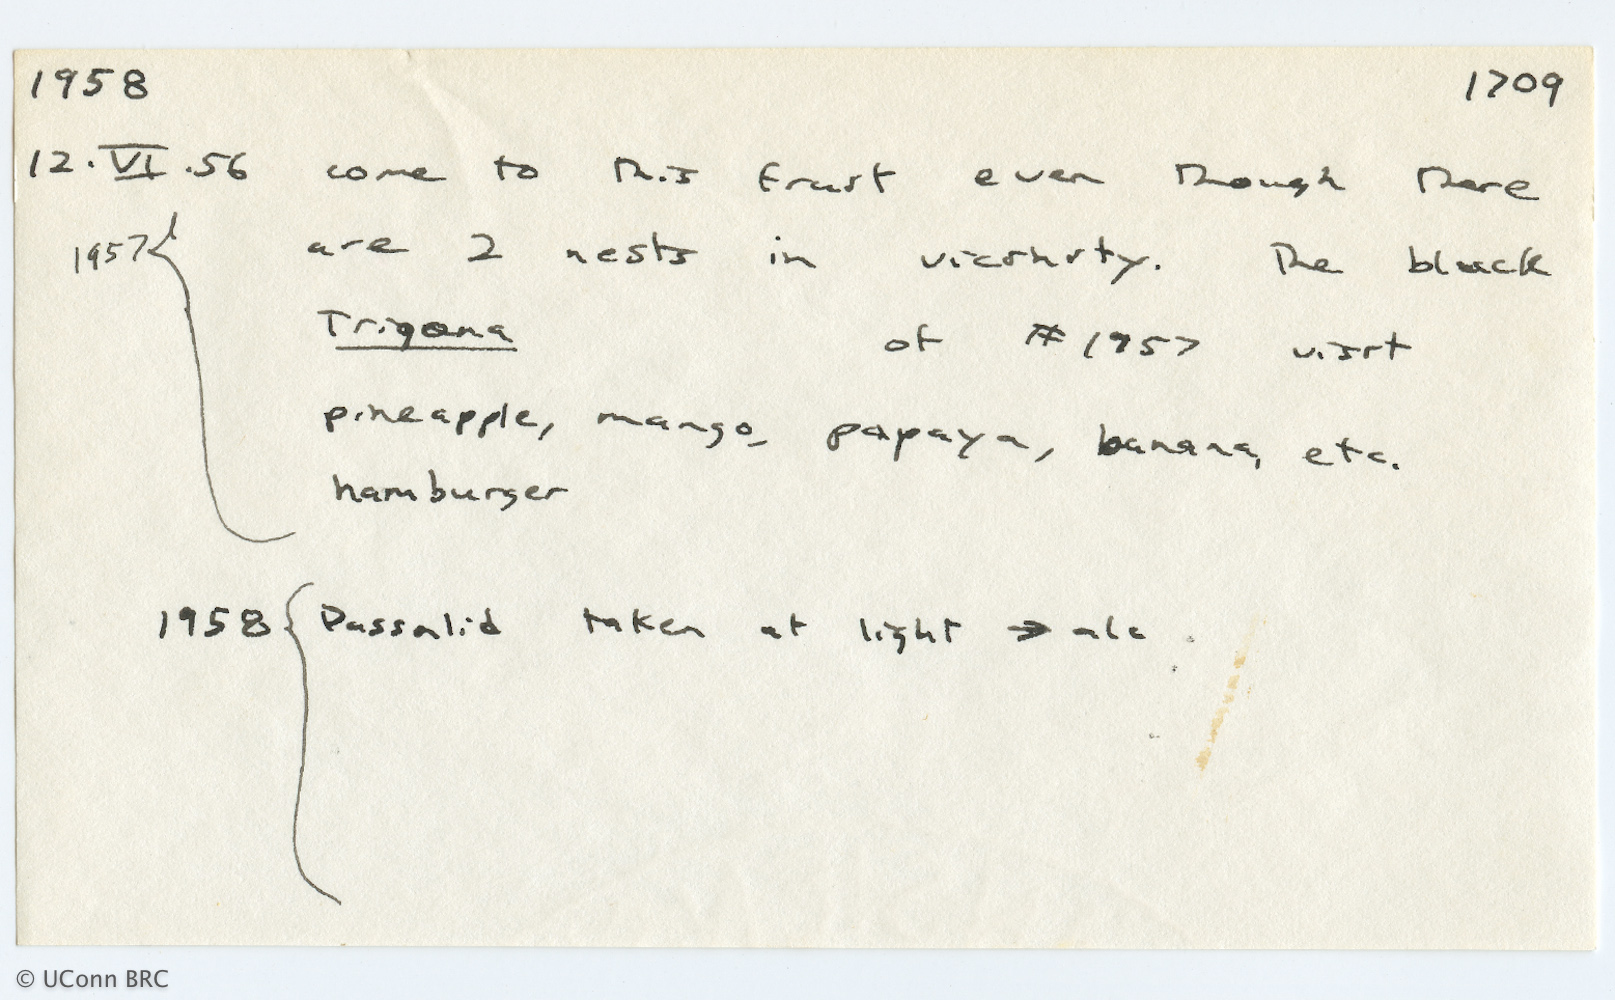 1958 1709
12.VI.56 come to this fruit even though there
1957 are 2 nests in vicinity. The black
Trigona of #1957 visit
pineapple, mango, papaya, banana, etc.
hamburger
1958 Passalid taken at light → alc.
© UConn BRC